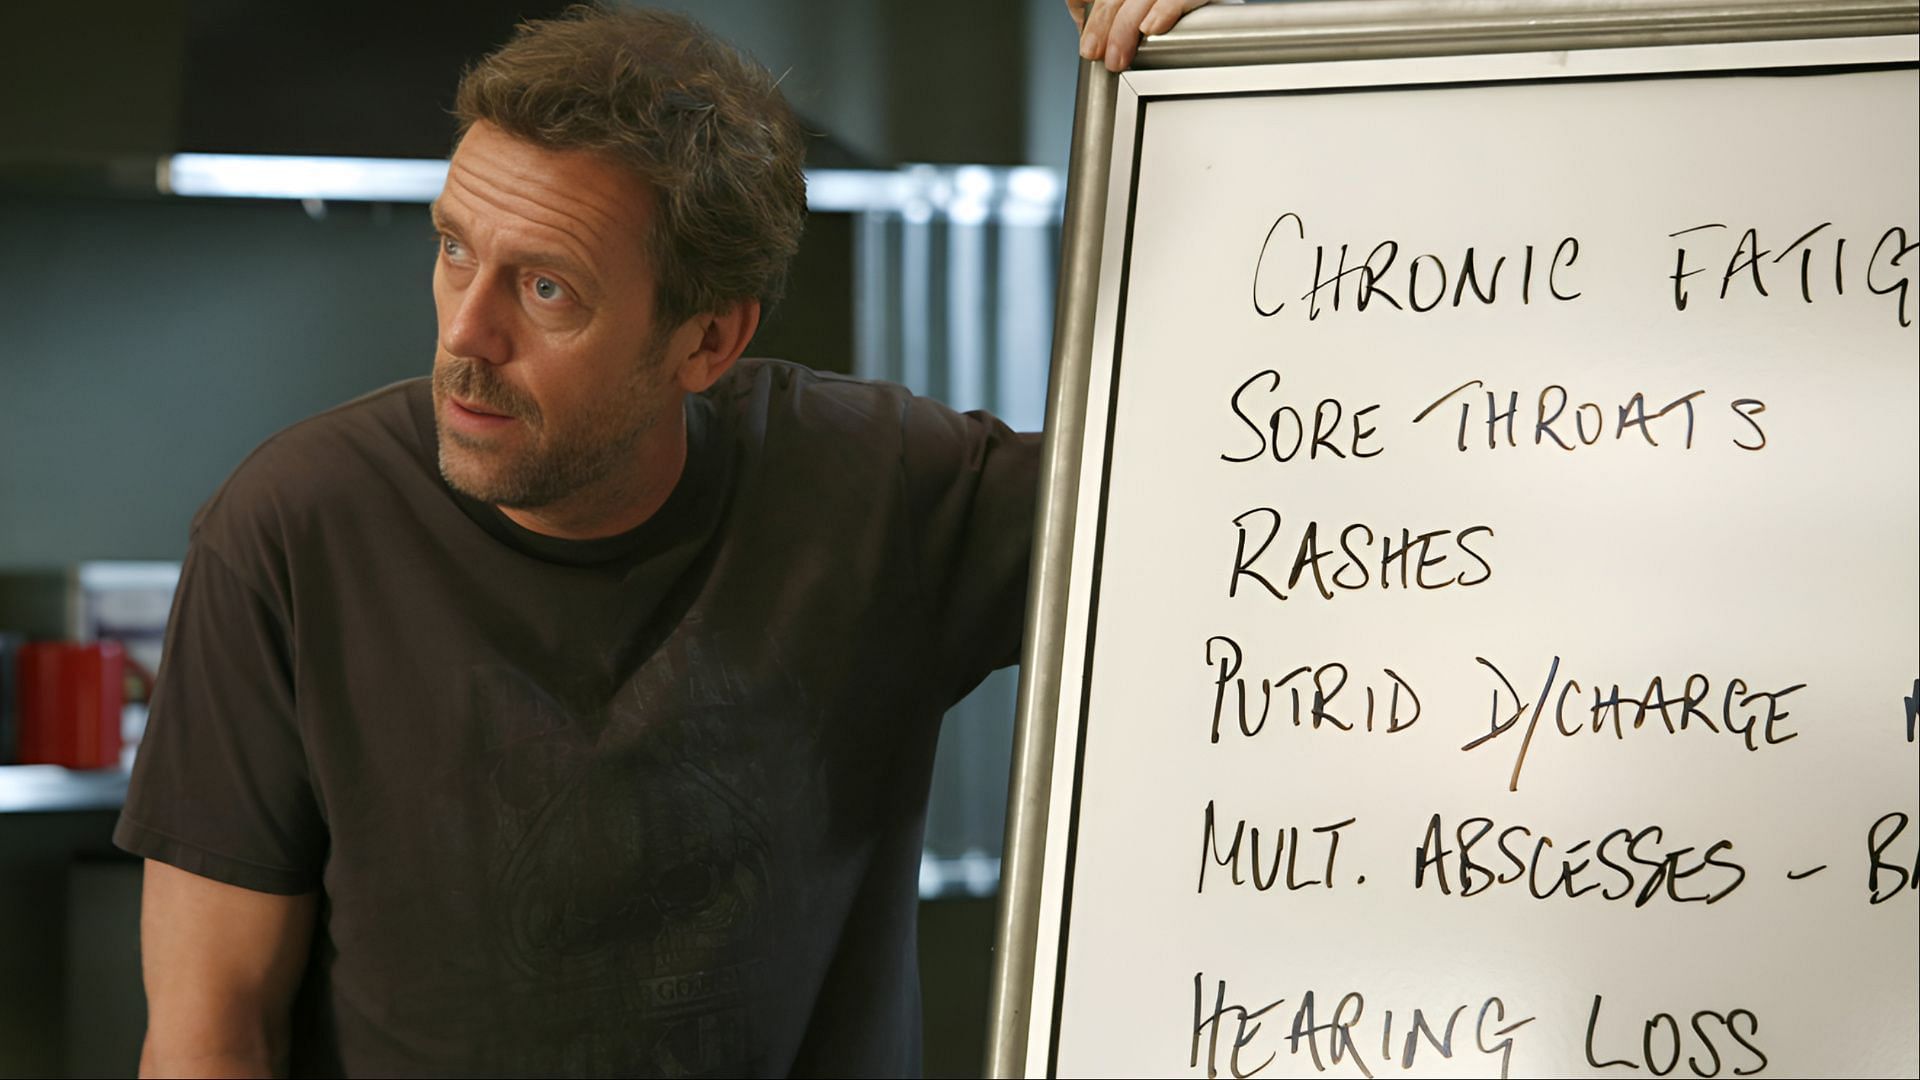 CHRONIC FATIG
SORE THROATS
RASHES
PUTRID D/CHARGE
MULT. ABSCESSES - BA
HEARING LOSS